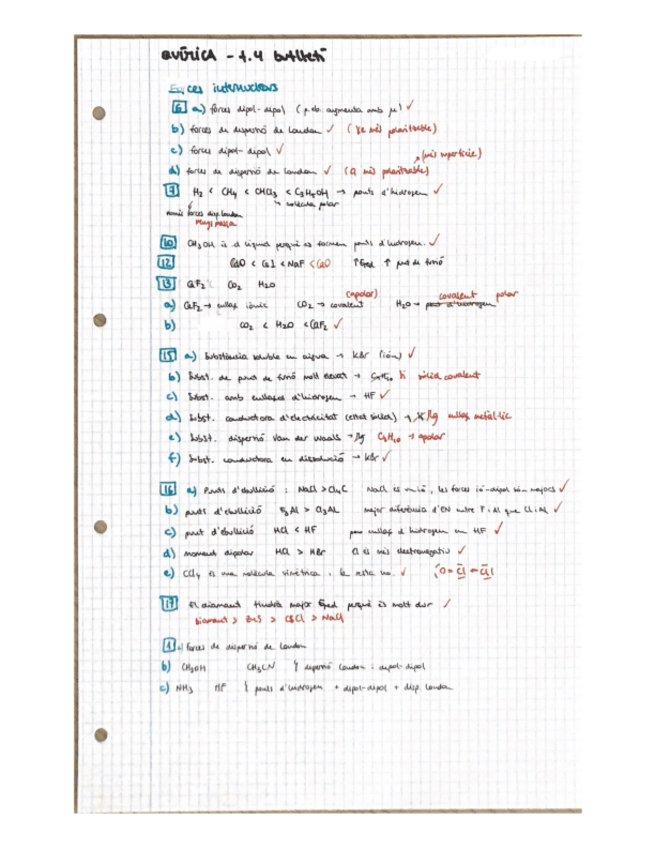 QUÍMICA - 1.4 butlletí
Forces intermoleculars
6 a) forces dipol-dipol (p.eb. augmenta amb μ) ✓
b) forces de dispersió de London ✓ (més polaritzable)
c) forces dipol-dipol ✓
(més superfície)
d) forces de dispersió de London ✓ (més polaritzable)
7 H₂ < CH₄ < CHCl₃ < C₂H₅OH → ponts d'hidrogen ✓
només forces disp. London
↳ molècula polar
10 CH₃OH és líquid perquè es formen ponts d'hidrogen. ✓
12 < NaF < CaO ↑Ered ↑ punt de fusió
13 CaF₂ CO₂ H₂O
(apolar) covalent polar
a) CaF₂ → enllaç iònic CO₂ → covalent H₂O → pont d'hidrogen
b) CO₂ < H₂O < CaF₂ ✓
15 a) Substància soluble en aigua → KBr (iònic) ✓
b) Subst. de punt de fusió molt elevat → C₅H₁₀ sòlid covalent
c) Subst. amb enllaços d'hidrogen → HF ✓
d) Subst. conductora d'electricitat (estat sòlid) → enllaç metàl·lic
e) Subst. dispersió Van der Waals → C₅H₁₀ → apolar
f) Subst. conductora en dissolució → KBr ✓
16 a) Punts d'ebullició : NaCl > Cl₄C NaCl és iònic, les forces ió-dipol són majors ✓
b) punts d'ebullició F₃Al > Cl₃Al major diferència d'EN entre F i Al que Cl i Al ✓
c) punt d'ebullició HCl < HF pon enllaç d'hidrogen en HF ✓
d) moment dipolar HCl > HBr Cl és més electronegatiu ✓
e) CCl₄ és una molècula simètrica i la resta no. ✓
17 El diamant tindrà major Ered perquè és molt dur ✓
Diamant > ZnS > CsCl > NaCl
1 a) Forces de dispersió de London
b) CH₃OH CH₃CN } dispersió London i dipol-dipol
c) NH₃ HF } ponts d'hidrogen + dipol-dipol + disp. London